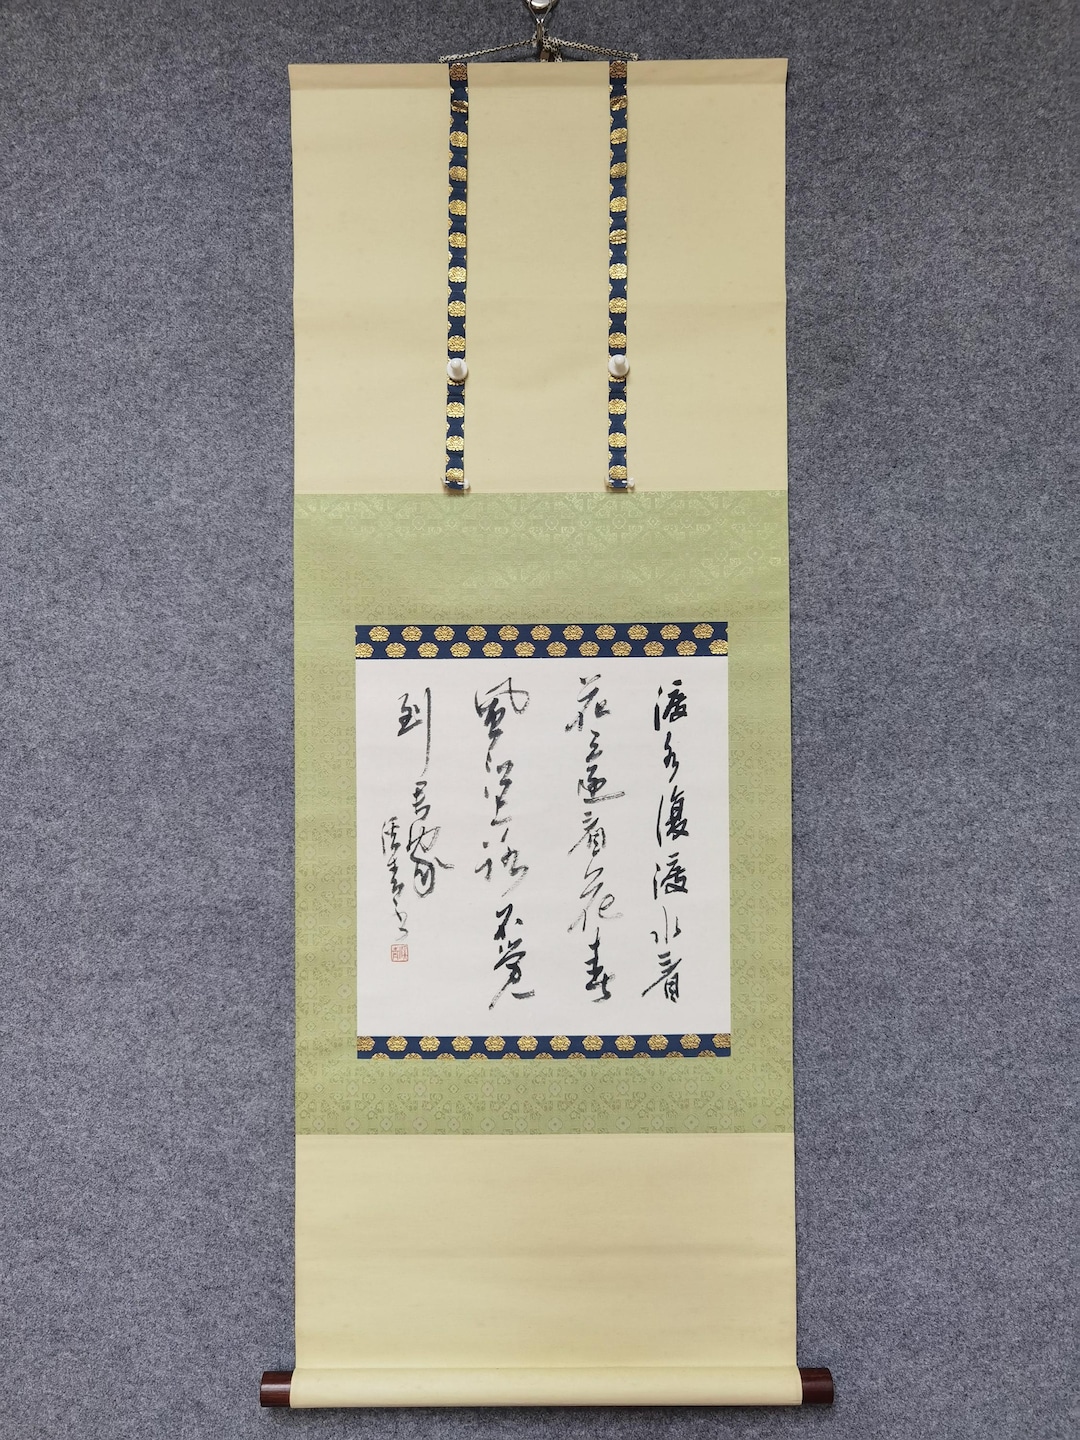 渡水復渡水看
花還看花春
風江上路不覚
到君家